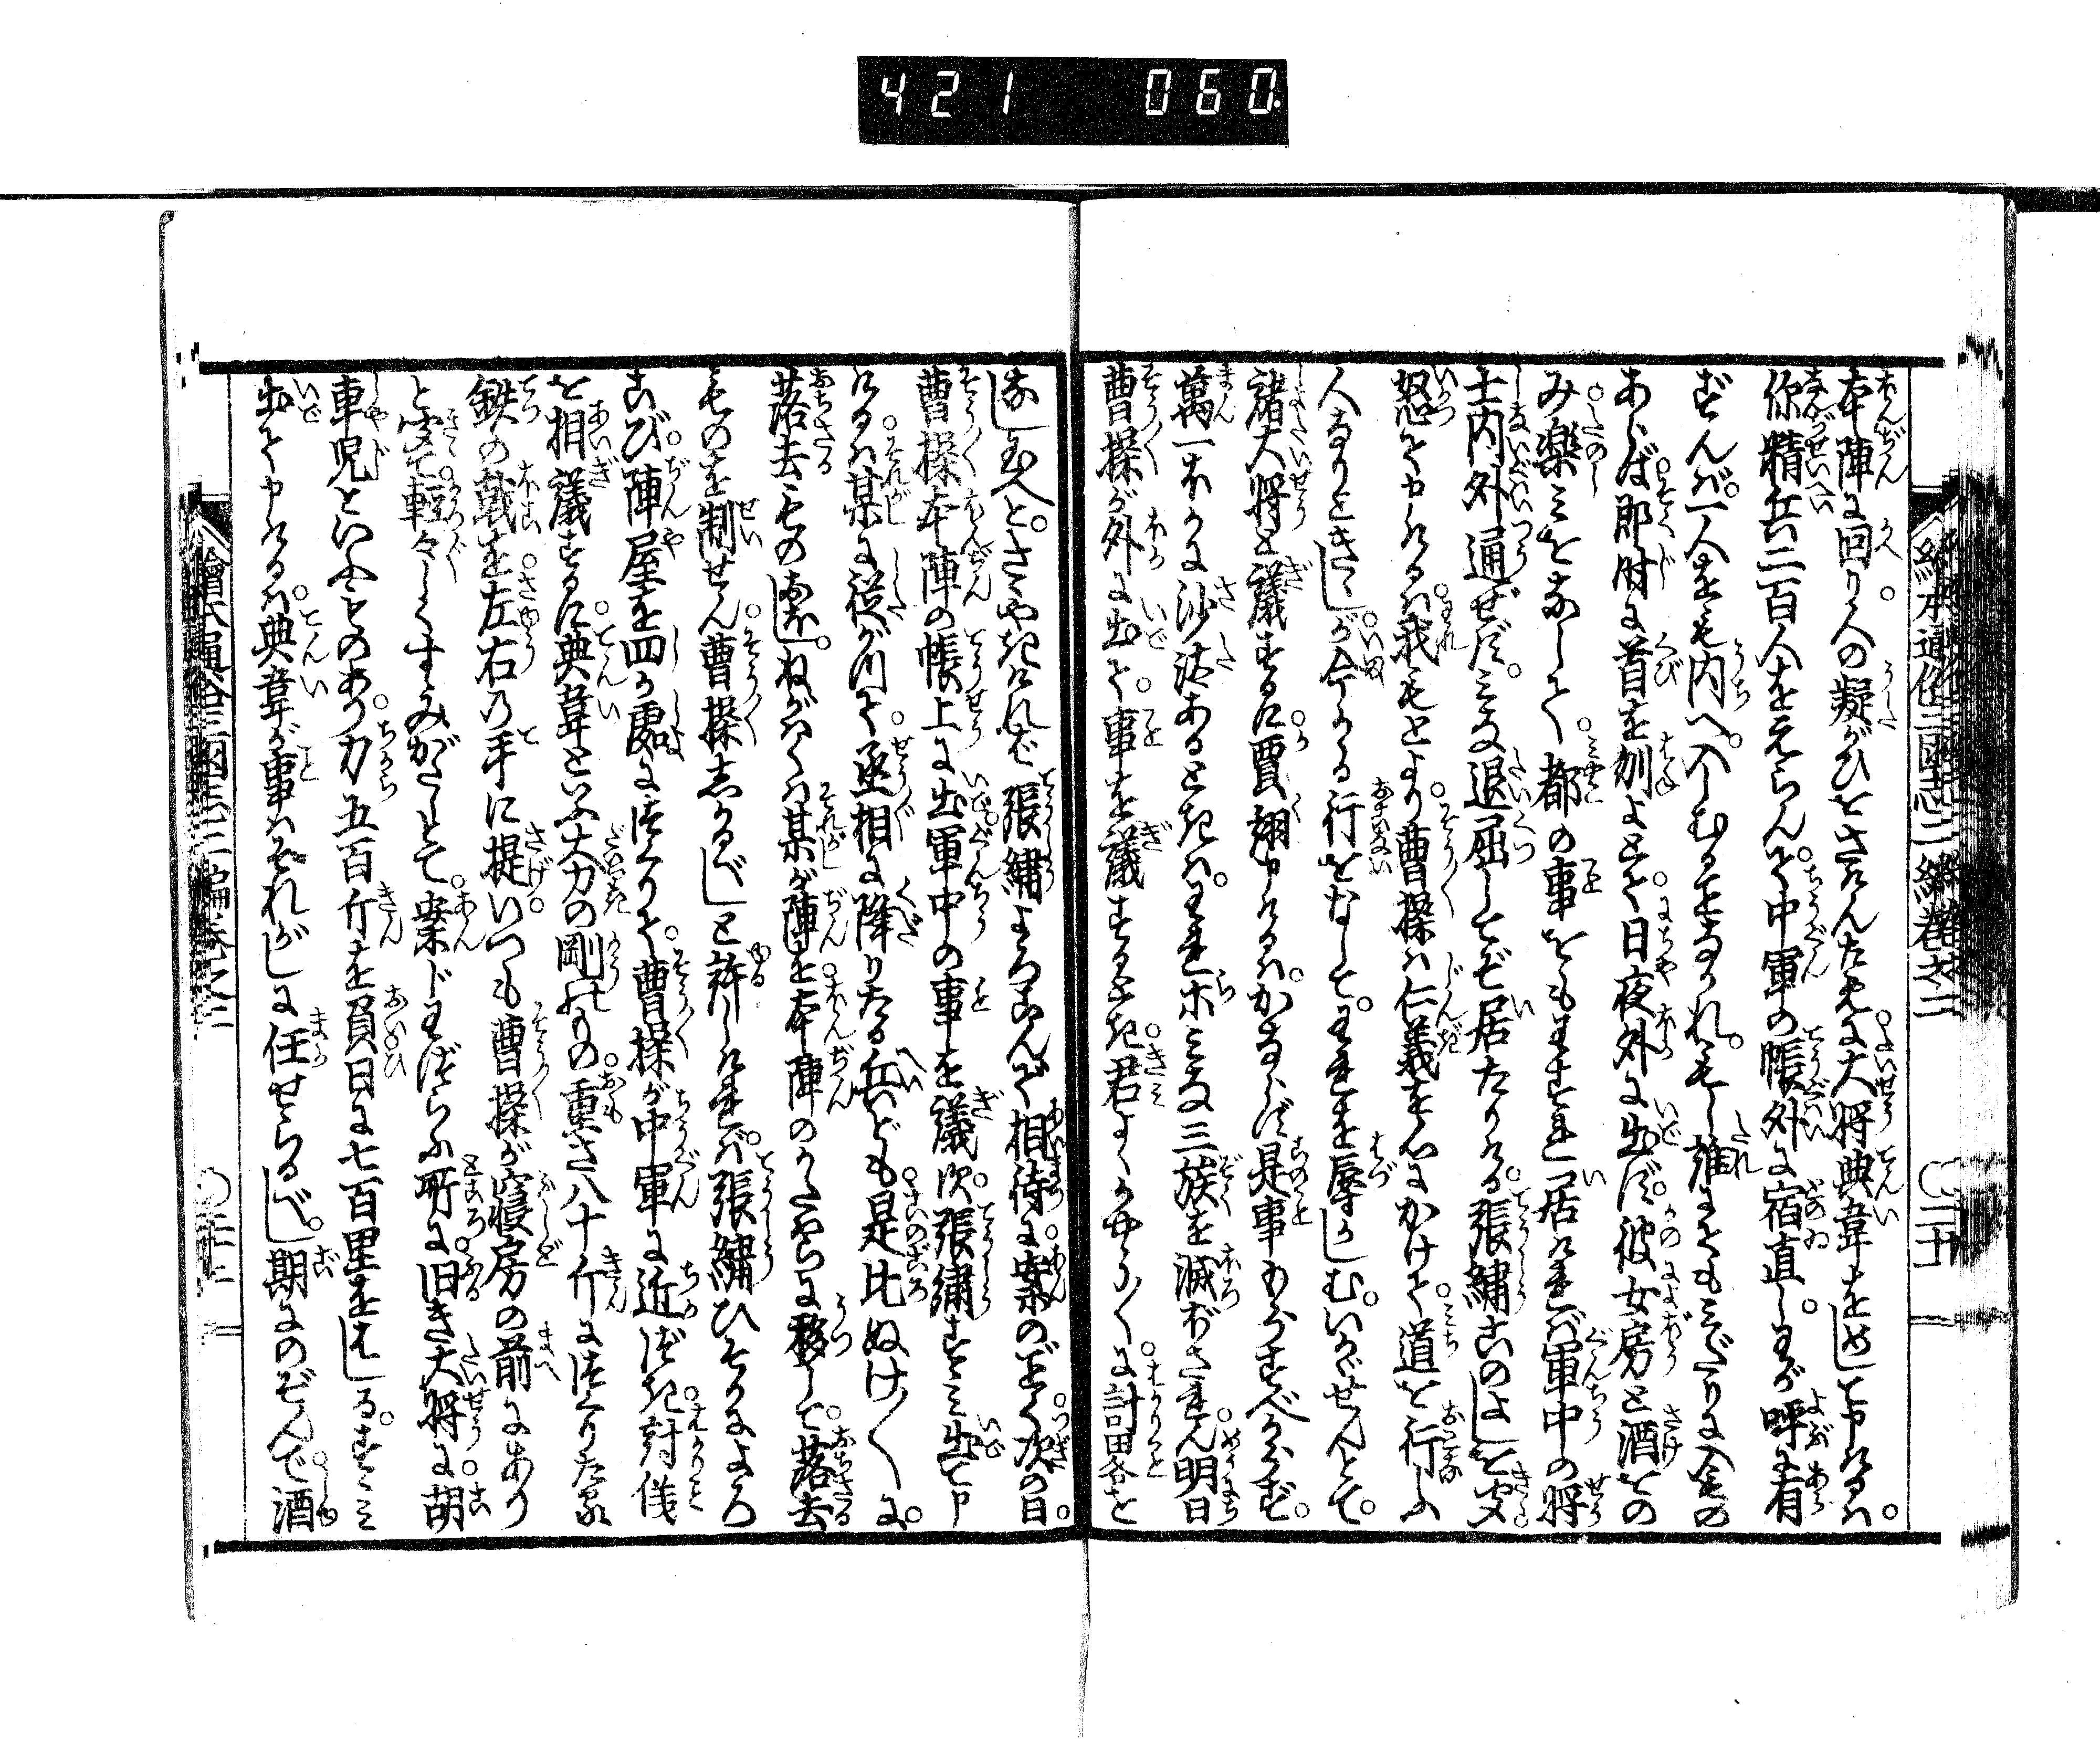 421 060
本陣に回り人の疑がひをさけんため大将典韋をめして申けるハ。
你精兵二百人をえらんで中軍の帳外に宿直し。わが呼に有
ずんバ。一人をも内へ入しむることなかれ。もし誰にてもみだりに入もの
あらば即時に首を刎よとて。日夜外に出ず。彼女房と酒をの
み楽ミをなして。都の事をもわすれ居けれバ軍中の将
士内外通ぜず。ミな退屈してぞ居たりける。張繡このよしを聞
怒て申けるハ我もとより曹操ハ仁義を心にかけて。道を行ふ
人なりときゝしが今かゝる行をなして。われを辱しむ。いかゞせんとて。
諸大将と議するに。賈詡申けるハ。かならず是事もらすべからず。
萬一ほかに沙汰あるときハ。われらミな三族を滅ぼされん明日
曹操が外に出て。事を議するとき。君よくかやう〱に計畧を
なし玉へと。さゝやきけれバ張繡よろこんで相待に。案のごとく次の日。
曹操本陣の帳上に出軍中の事を議ス。張繡すゝミ出て申
けるハ。某に従がつて。丞相に降りたる兵ども。是比ぬけ〱に。
落去ものおほし。ねがハくハ某が陣を。本陣のかたハらに移して。落去
ものを制せん。曹操しかるべしと許しけれバ。張繡ひそかによろ
こび。陣屋を四か処につくりて。曹操が中軍に近づき討儀
を相議するに。典韋といふ大力の剛のもの。重さ八十斤につくりたる
鉄の戟を。左右の手に提。いつも曹操が寝房の前にあり
と聞て。軽々しくすゝみがたしとて。案じわづらふ所に。旧き大将に。胡
車児といふものあり。力五百斤を負日に七百里をはしる。すゝミ
出て申けるハ。典韋が事ハそれがしに任せらるべし。期にのぞんで。酒